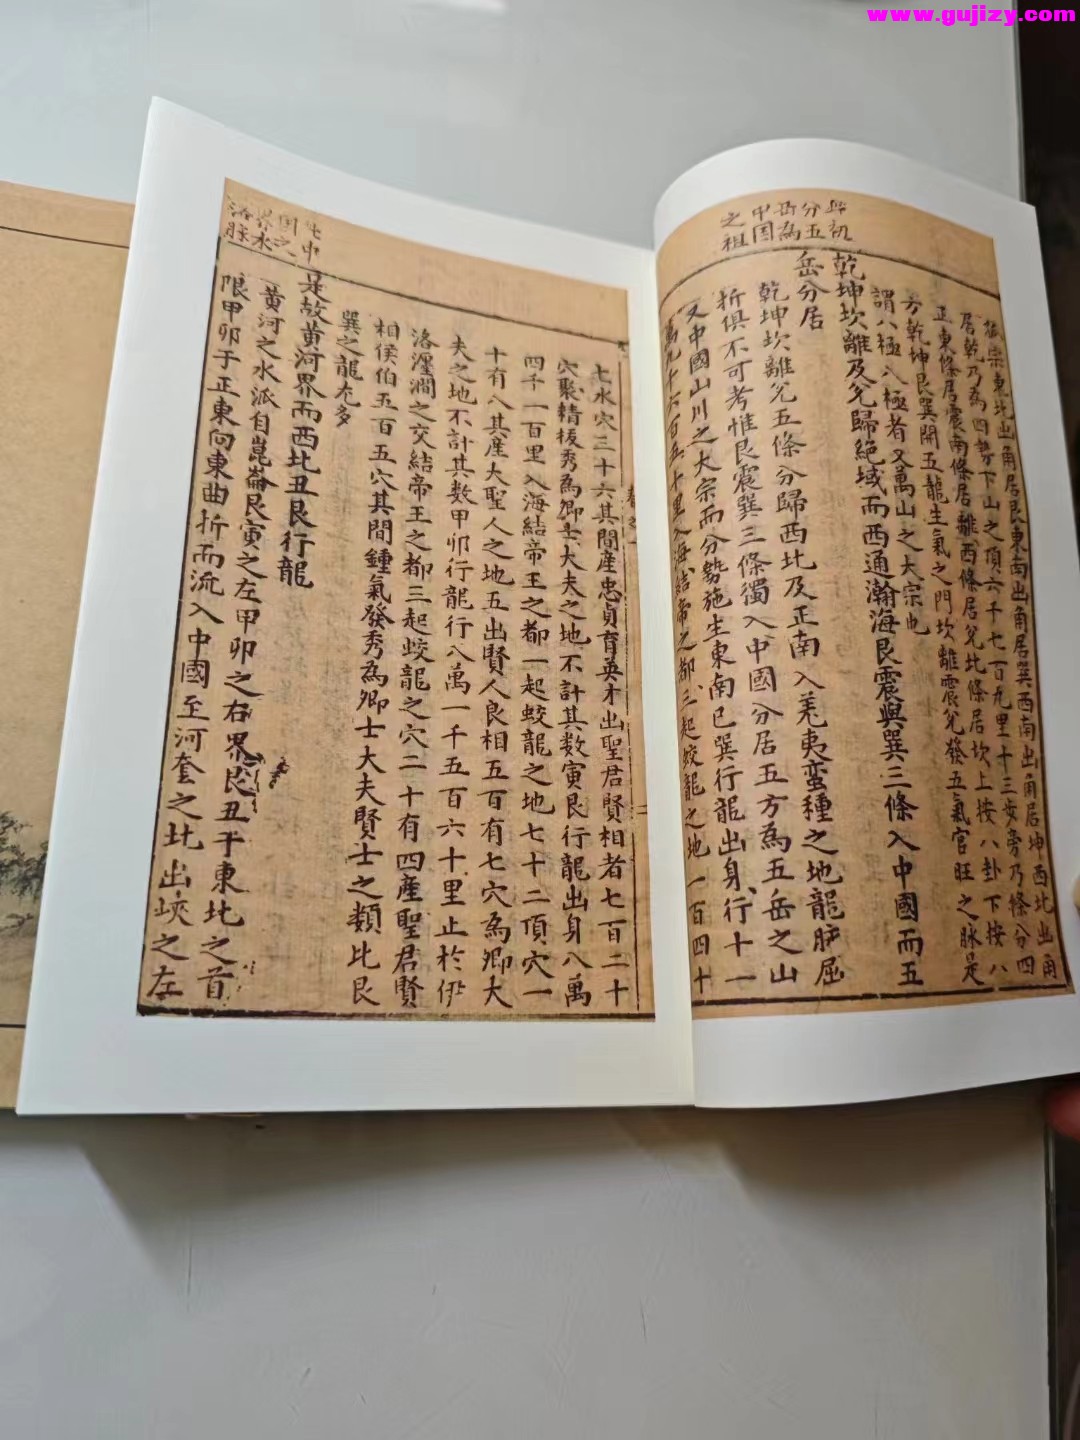 www.gujizy.com
分五
岳為
中国
之祖
宗東北出角居艮東南出角居巽西南出角居坤西北出角
居乾乃為四勢下山之頂六千七百九里十三步旁乃條分四
正東條居震南條居離西條居兌北條居坎上按八卦下按八
方乾坤艮巽開五龍生氣之門坎離震兌發五氣官旺之脉是
謂八極八極者又萬山之大宗也
乾坤坎離及兌歸絕域而西通瀚海艮震與巽三條入中國而五
岳分居
乾坤坎離兌五條分歸西北及正南入羗夷蛮種之地龍脉屈
折俱不可考惟艮震巽三條獨入中國分居五方為五岳之山
又中國山川之大宗而分勢施生東南巳巽行龍出身行十一
萬九千六百五十里入海結帝之都三起蛟龍之地一百四十
七水穴三十六其間產忠貞育英才出聖君賢相者七百二十
穴聚精拔秀為卿士大夫之地不計其數寅艮行龍出身八萬
四千一百里入海結帝王之都一起蛟龍之地七十二頂穴一
十有八其產大聖人之地五出賢人良相五百有七穴為卿大
夫之地不計其數甲卯行龍行八萬一千五百六十里止於伊
洛瀍澗之交結帝王之都三起蛟龍之穴二十有四產聖君賢
相侯伯五百五穴其間鍾氣發秀為卿士大夫賢士之類比艮
巽之龍尤多
是故黃河界而西北丑艮行龍
黃河之水派自崑崙艮寅之左甲卯之右界艮丑于東北之首
限甲卯于正東向東曲折而流入中國至河套之北出峽之左
中
国之
界水